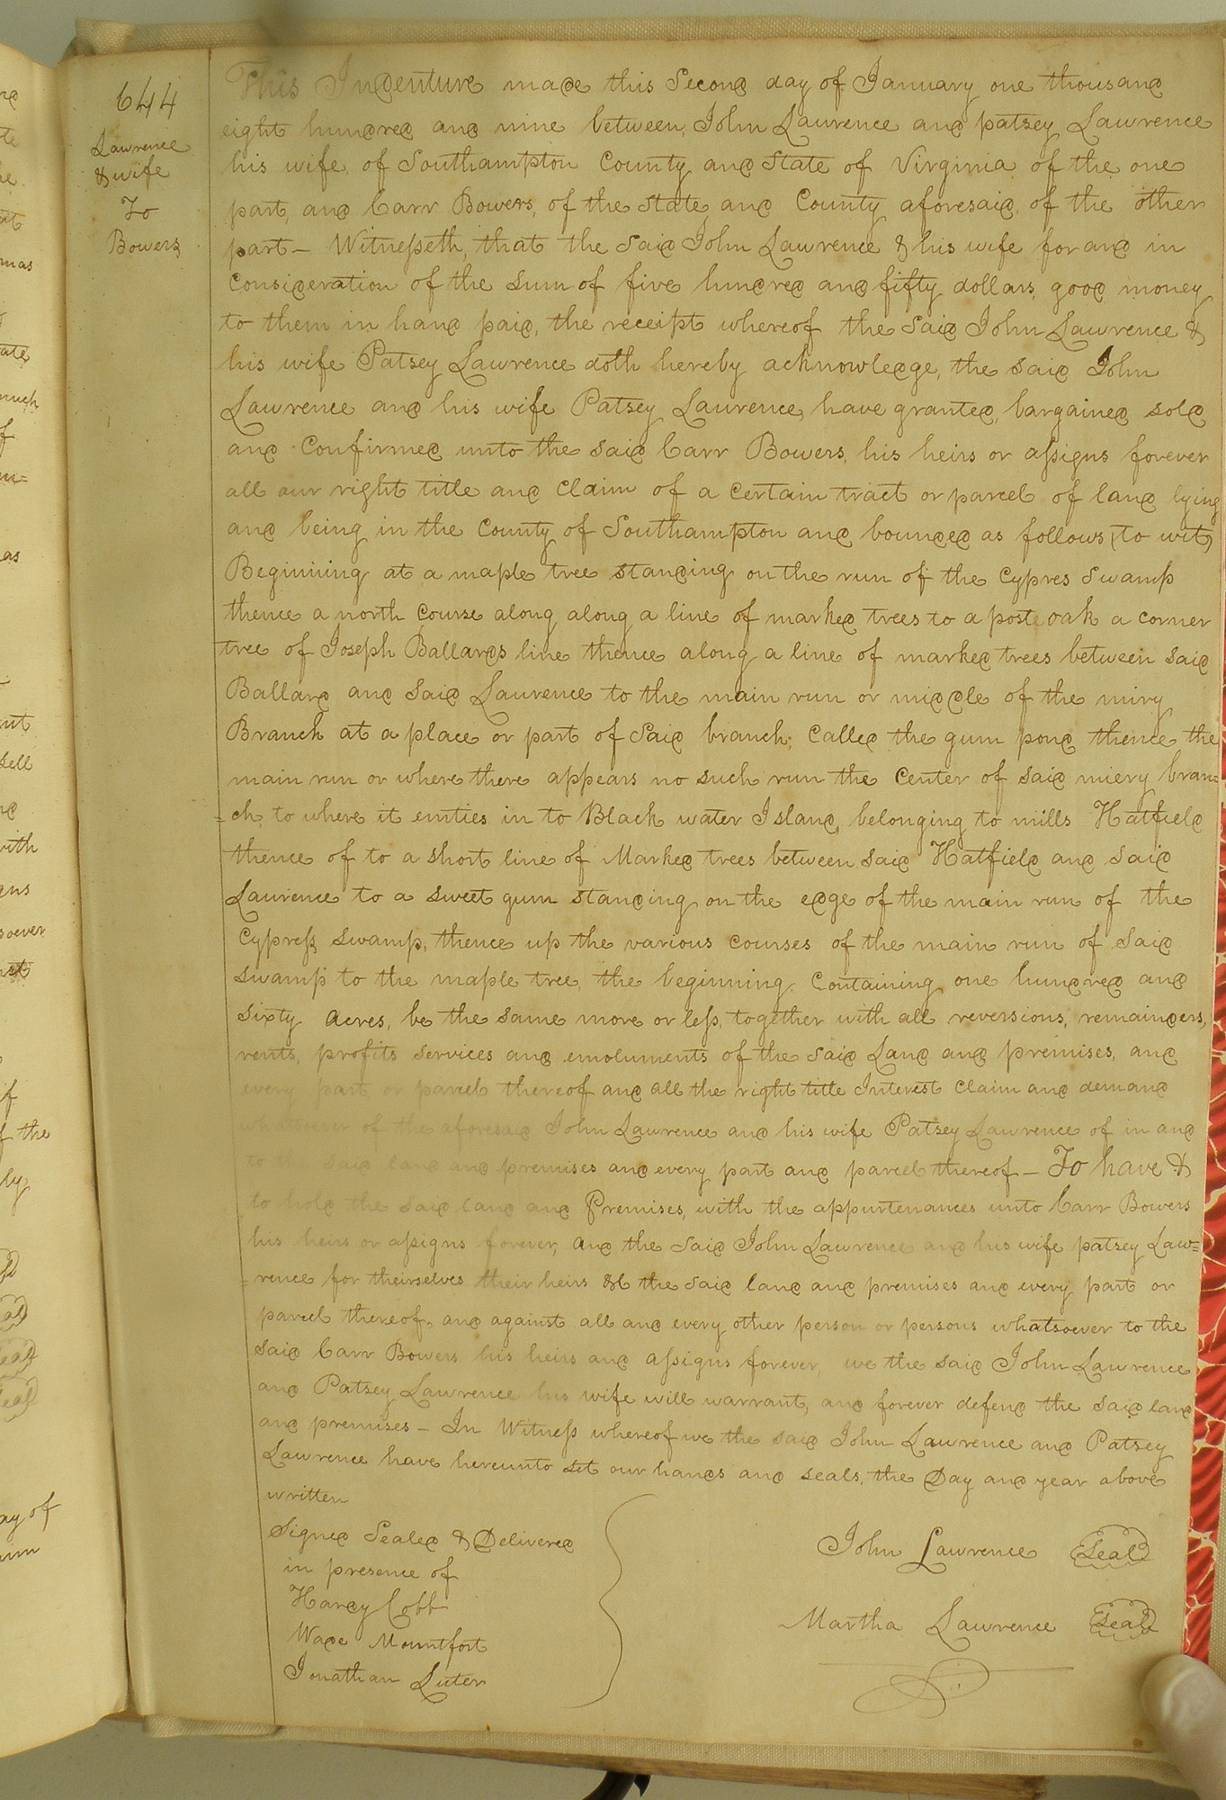 644
Lawrence
& wife
To
Bowers
This Indenture made this Second day of January one thousand
eight hundred and nine between, John Lawrence and patsey Lawrence
his wife, of Southampton County and State of Virginia of the one
part, and Carr Bowers, of the State and County aforesaid, of the other
part – Witnesseth, that the Said John Lawrence & his wife for and in
Consideration of the Sum of five hundred and fifty dollars, good money
to them in hand paid, the receipt whereof the Said John Lawrence &
his wife Patsey Lawrence doth hereby acknowledge, the Said John
Lawrence and his wife Patsey Laurence, have granted, bargained, sold
and Confirmed unto the said Carr Bowers, his heirs or assigns forever
all our right title and Claim of a Certain tract or parcel of land lying
and being in the County of Southampton and bounded as follows, (to wit)
Beginning at a maple tree standing on the run of the Cypres Swamp
thence a north Course along along a line of marked trees to a post oak a corner
tree of Joseph Ballards line thence along a line of marked trees between said
Ballard and said Laurence to the main run or middle of the miry
Branch at a place or part of Said branch; Called the gum pond thence the
main run or where there appears no such run the Center of said miery bran=
=ch, to where it emties in to Black water Island, belonging to mills Hatfield
thence of to a short line of Marked trees between said Hatfield and said
Laurence to a sweet gum standing on the edge of the main run of the
Cypress swamp, thence up the various courses of the main run of Said
swamp to the maple tree, the beginning. Containing one hundred and
Sixty Acres, be the same more or less, together with all reversions, remainders,
rents, profits services and emoluments of the said Land and premises, and
every part or parcel thereof and all the right title Interest Claim and demand
whatever of the aforesaid John Lawrence and his wife Patsey Lawrence of in and
to the said land and premises and every part and parcel thereof – To have &
to hold the said land and Premises, with the appurtenances unto Carr Bowers
his heirs or assigns forever, and the Said John Lawrence and his wife patsey Law=
=rence for theirselves their heirs &c the Said land and premises and every part or
parcel thereof, and against all and every other person or persons whatsoever to the
Said Carr Bowers his heirs and assigns forever, we the said John Lawrence
and Patsey Lawrence his wife will warrant, and forever defend the said land
and premises – In Witness whereof we the said John Lawrence and Patsey
Lawrence have hereunto set our hands and seals, the Day and year above
written
Signed Sealed & Delivered
in presence of
Hardy Cobb
Wade Mountfort
Jonathan Luter
John Lawrence Seal
Martha Lawrence Seal